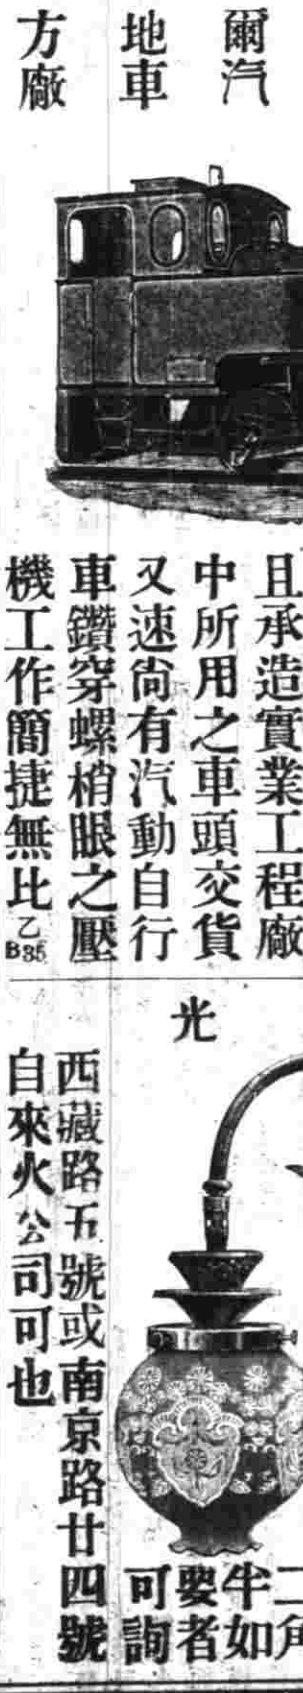 爾汽
地車
方廠
且承造實業工程廠
中所用之車頭交貨
又速尙有汽動自行
車鑽穿螺梢眼之壓
機工作簡捷無比 乙
B35
光
二角
牛如
要者
可詢
西藏路五號或南京路廿四號
自來火公司可也